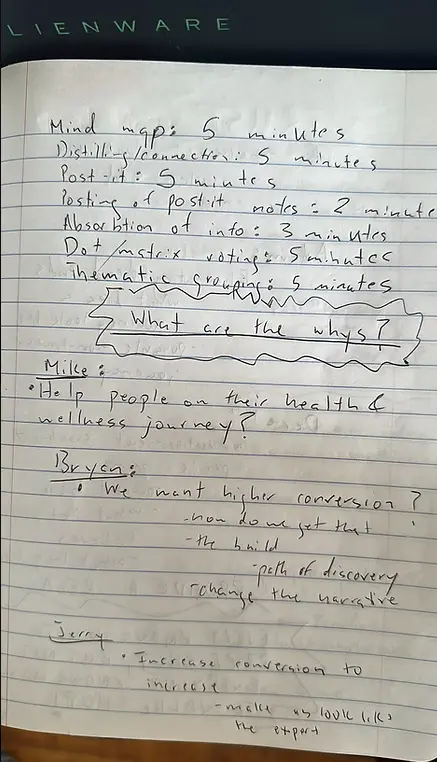 LIENWARE
Mind map: 5 minutes
Distilling/connection: 5 minutes
Post-it: 5 minutes
Posting of post-it notes: 2 minute
Absorbtion of info: 3 minutes
Dot/matrix voting: 5 minutes
Thematic grouping: 5 minutes
What are the whys?
Mike:
• Help people on their health &
wellness journey?
Bryan:
• We want higher conversion?
-how do we get that
-the build
-path of discovery
-change the narrative
Jerry
• Increase conversion to
increase
-make us look like
the expert